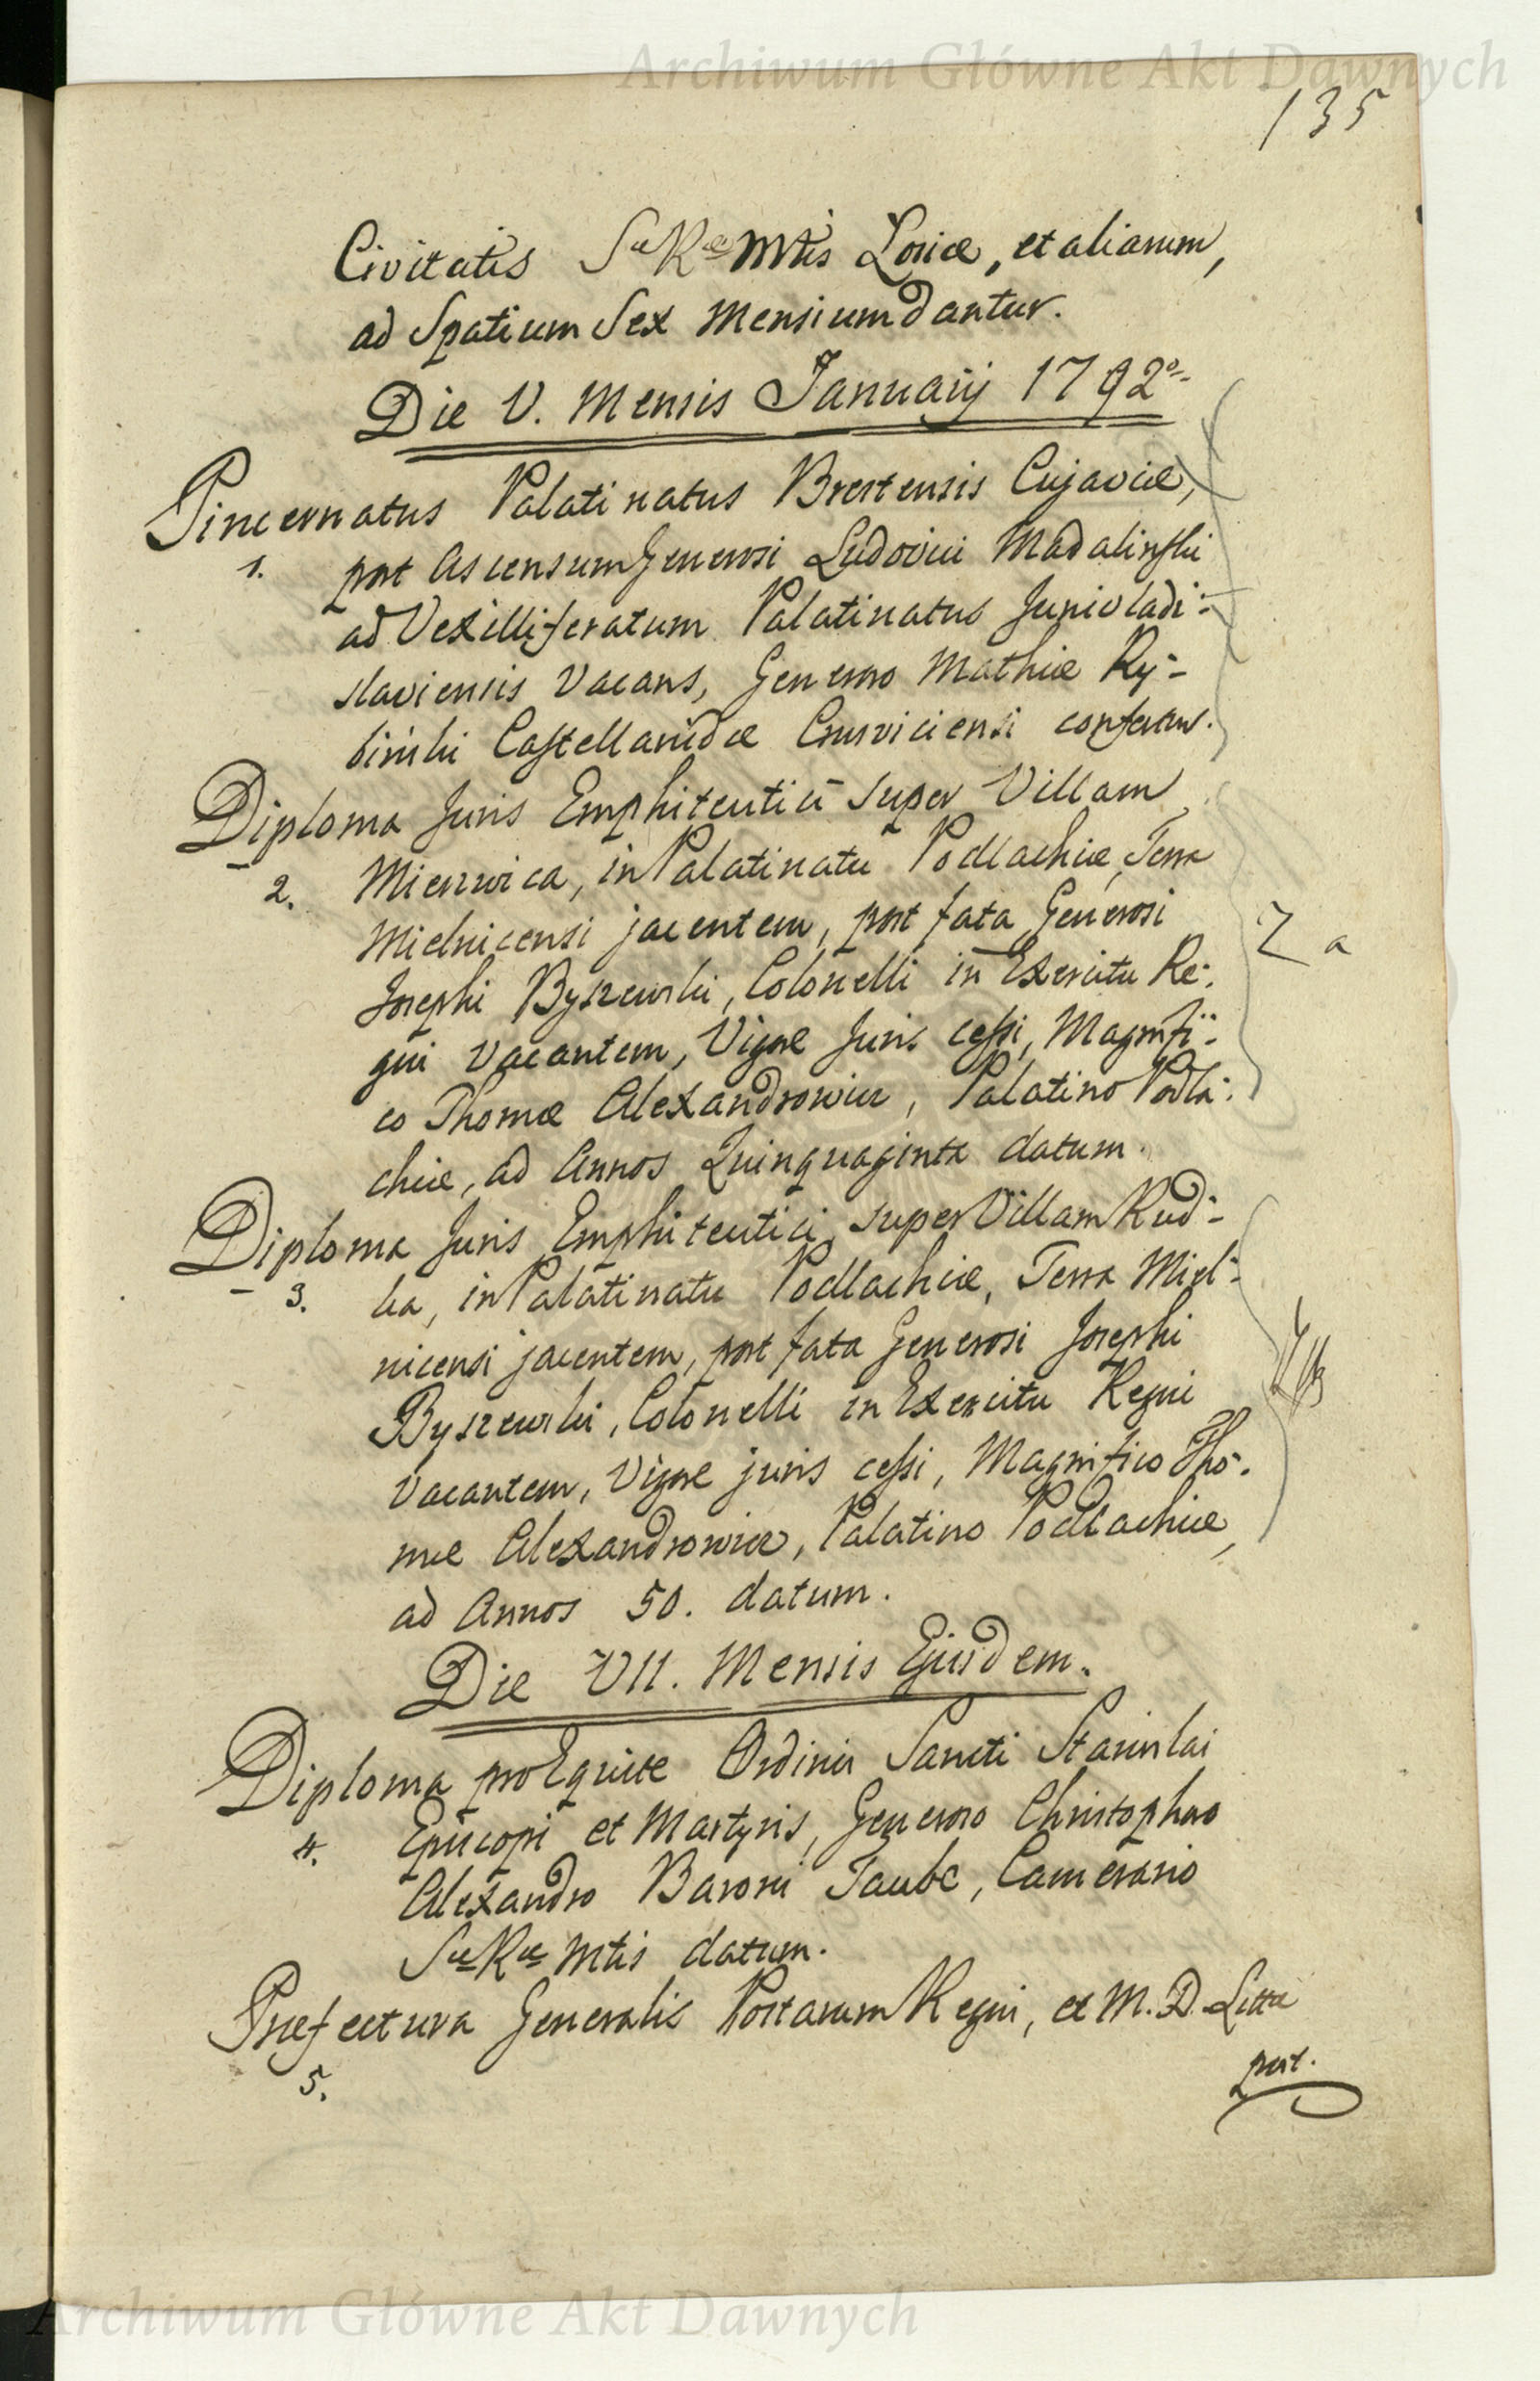 Archiwum Główne Akt Dawnych
135
Civitatis Sæ Ræ Mtis Loricæ, et aliarum,
ad Spatium Sex Mensium dantur.
Die V. Mensis Januarij 1792º
Pincernatus Palatinatus Brestensis Cujaviæ,
1. post Ascensum Generosi Ludovici Madalinski
ad Vexilliferatum Palatinatus Junivladi=
slaviensis vacans, Generoso Mathiæ Ry=
binski Castellanidæ Crusviciensi confertur.
Diploma Juris Emphiteutici super Villam
2. Mierzwica, in Palatinatu Podlachiæ, Terra
Mielnicensi jacentem, post fata Generosi
Josephi Byszewski, Colonelli in Exercitu Re=
gni vacantem, Vigore Juris cessi, Magnifi=
co Thomæ Alexandrowicz, Palatino Podla=
chiæ, ad Annos Quinquaginta datum.
Diploma Juris Emphiteutici super Villam Rud=
3. ka, in Palatinatu Podlachiæ, Terra Miel=
nicensi jacentem, post fata Generosi Josephi
Byszewski, Colonelli in Exercitu Regni
vacantem, Vigore juris cessi, Magnifico Tho=
mæ Alexandrowicz, Palatino Podlachiæ,
ad Annos 50. datum.
Die VII. Mensis Ejusdem.
Diploma pro Equite Ordinis Sancti Stanislai
4. Episcopi et Martyris, Generoso Christophoro
Alexandro Baroni Taube, Camerario
Sæ Ræ Mtis datum.
Præfectura Generalis Postarum Regni, et M. D. Litta
5.
post.
Archiwum Główne Akt Dawnych